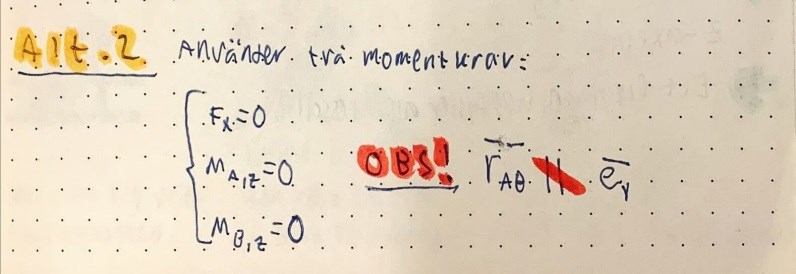 Alt.2 Använder två momentkrav:
Fx=0
MA,z=0 OBS! r̅AB ∦ e̅y
MB,z=0